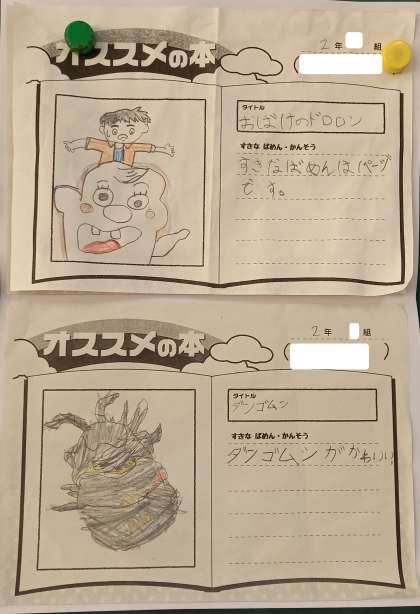 オススメの本
2年 組
タイトル
おばけのドロロン
すきな ばめん・かんそう
すきなばめんはページ
です。
オススメの本
2年 組
タイトル
ダンゴムシ
すきな ばめん・かんそう
ダンゴムシがかわいい